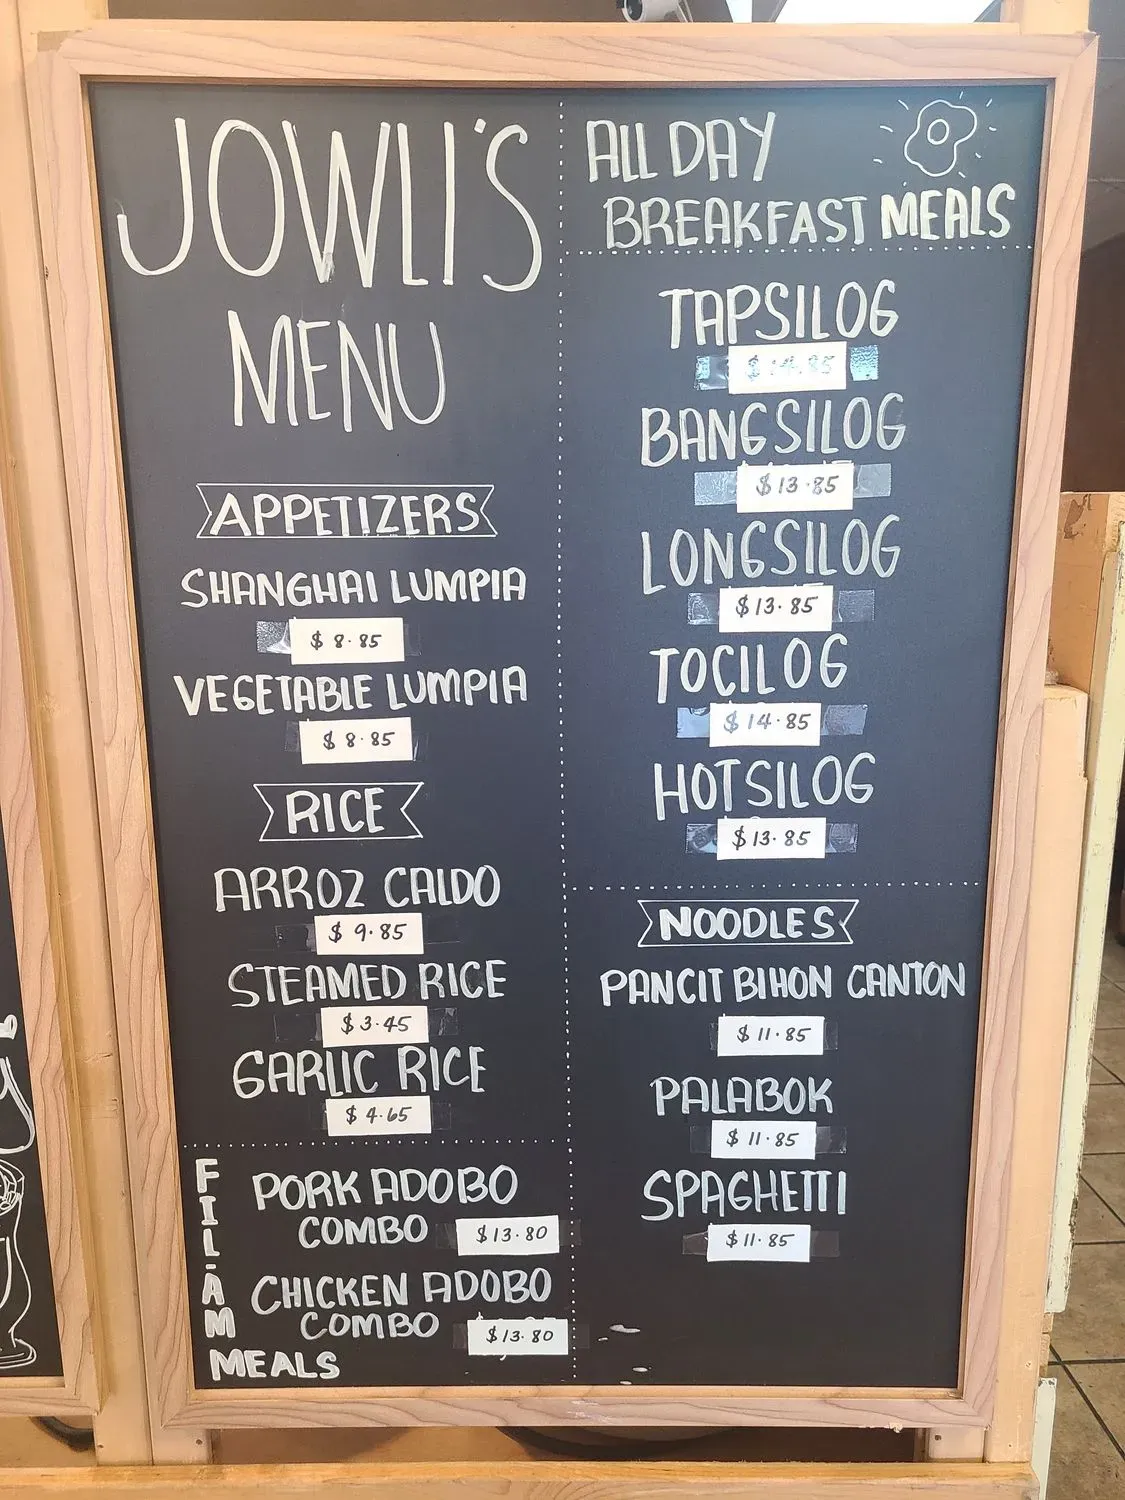 JOWLI'S
MENU
APPETIZERS
SHANGHAI LUMPIA
$ 8.85
VEGETABLE LUMPIA
$ 8.85
RICE
ARROZ CALDO
$ 9.85
STEAMED RICE
$ 3.45
GARLIC RICE
$ 4.65
FIL-AM
MEALS
PORK ADOBO
COMBO $13.80
CHICKEN ADOBO
COMBO $13.80
ALL DAY
BREAKFAST MEALS
TAPSILOG
$ 14.85
BANGSILOG
$13.85
LONGSILOG
$13.85
TOCILOG
$14.85
HOTSILOG
$13.85
NOODLES
PANCIT BIHON CANTON
$ 11.85
PALABOK
$ 11.85
SPAGHETTI
$ 11.85